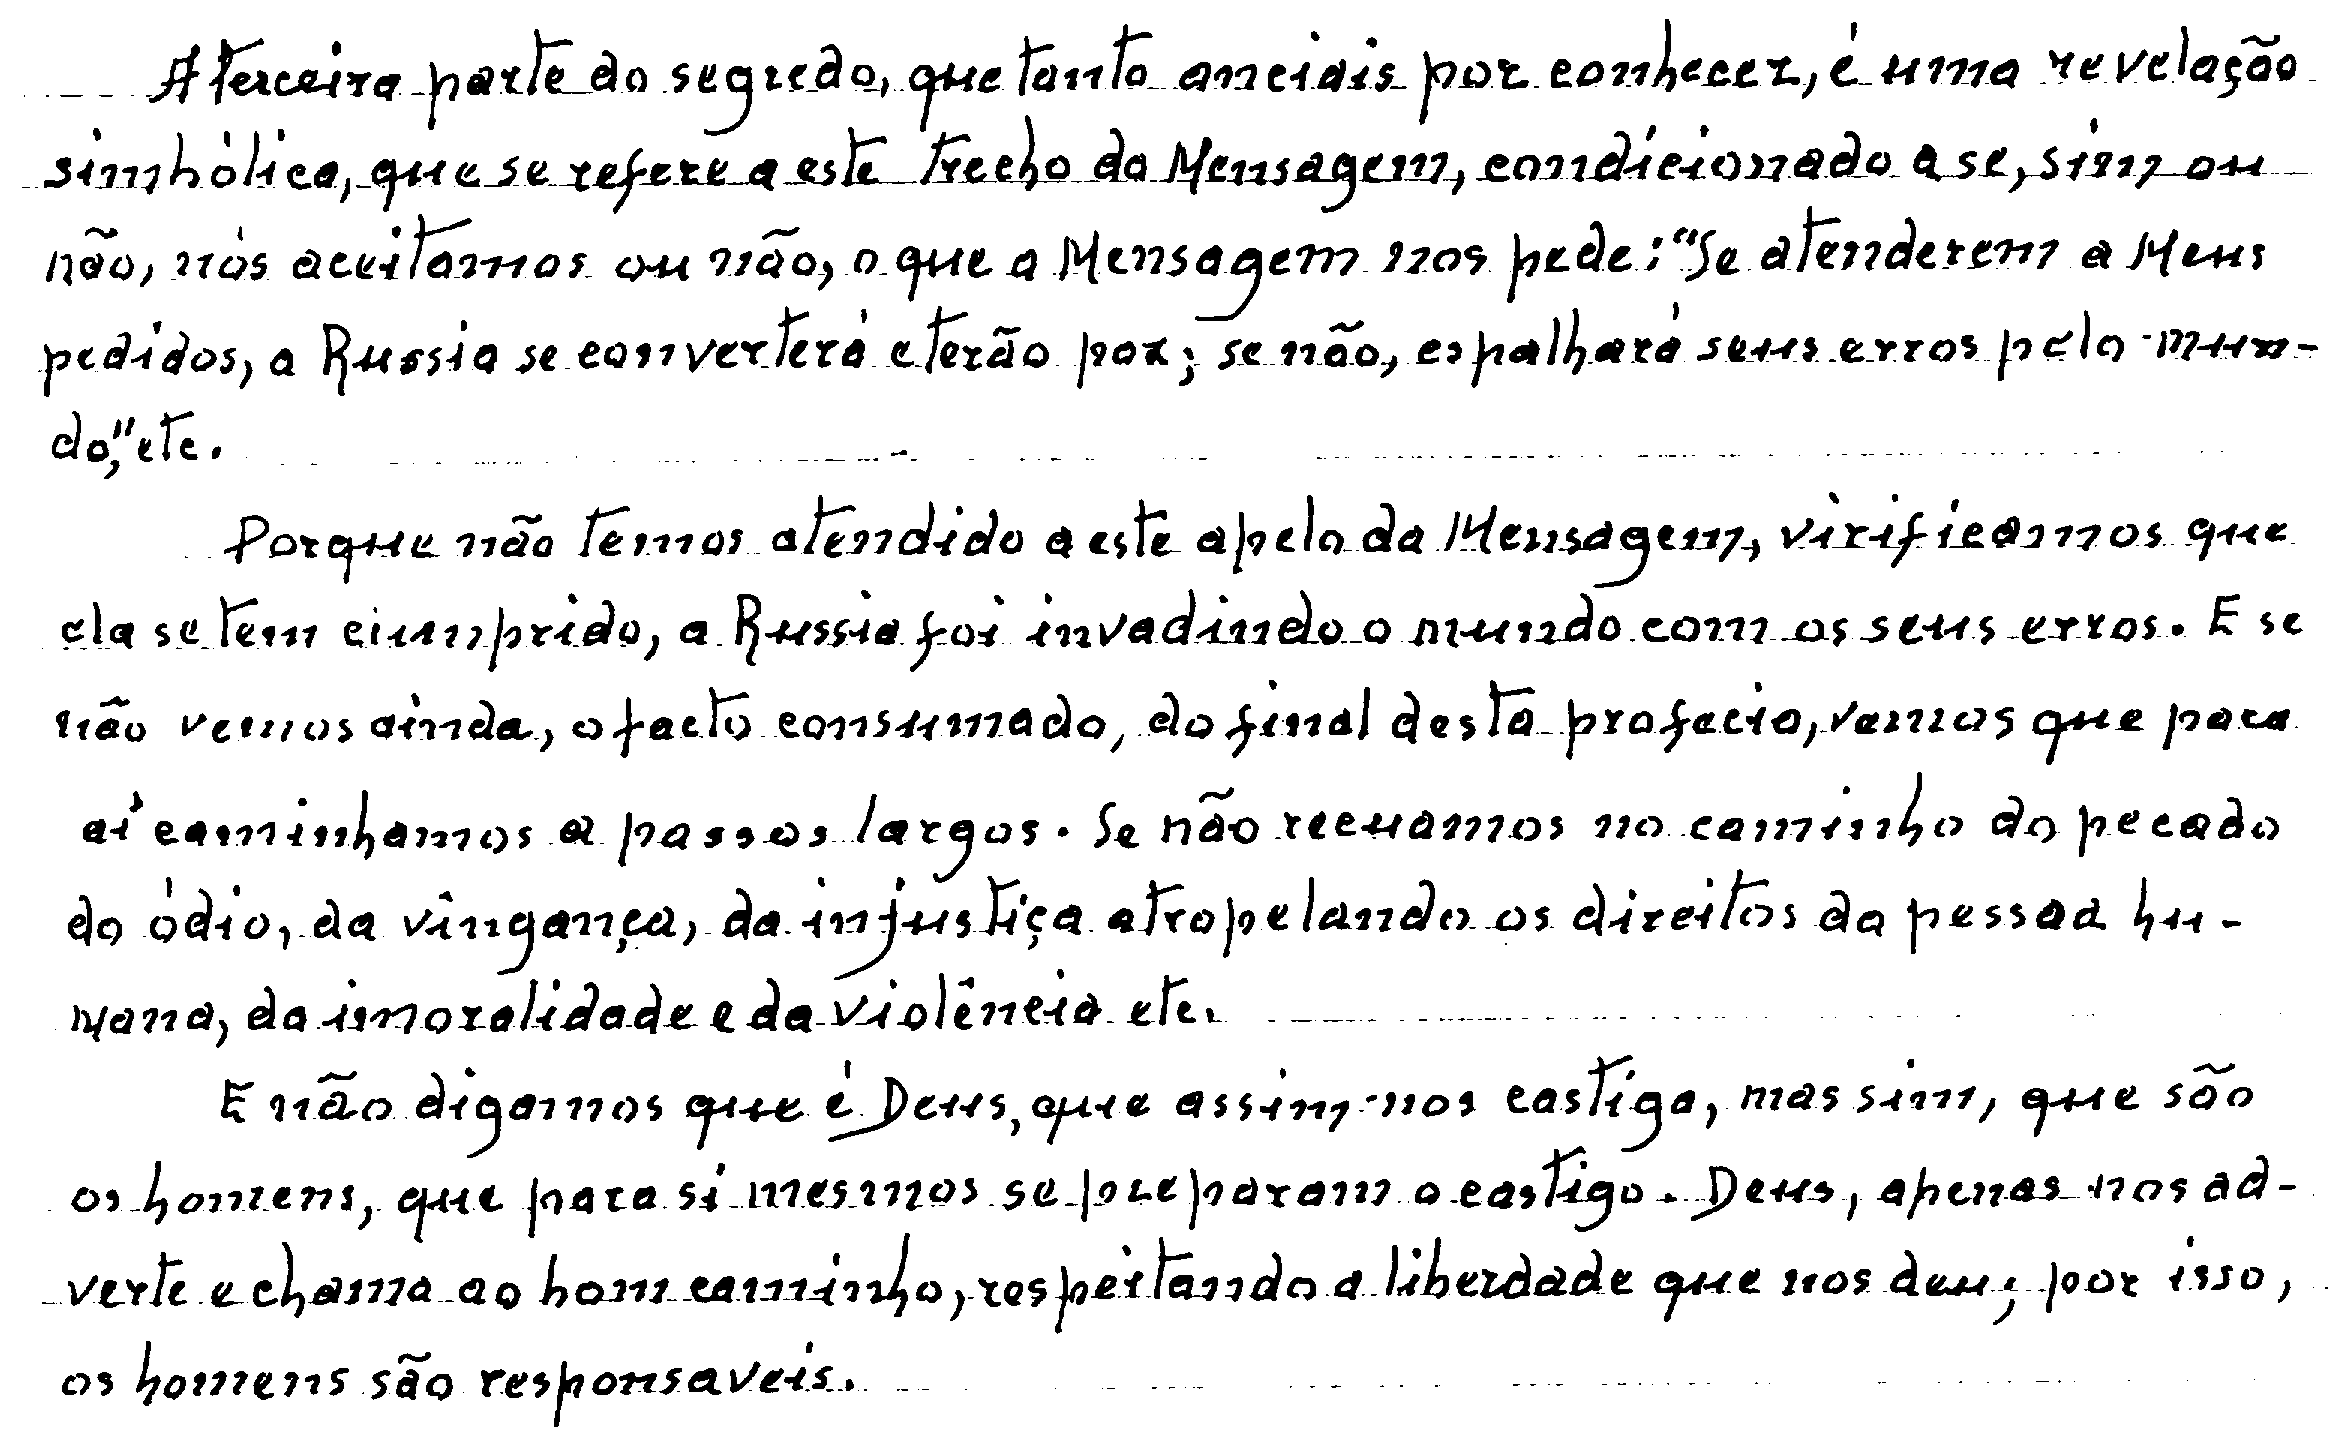 A terceira parte do segredo, que tanto anciais por conhecer, é uma revelação
simbólica, que se refere a este trecho da Mensagem, condicionado a se, sim ou
não, nós aceitamos ou não, o que a Mensagem nos pede: "Se atenderem a Meus
pedidos, a Russia se converterá e terão paz; se não, espalhará seus erros pelo mun-
do," etc.
Porque não temos atendido a este apelo da Mensagem, virificamos que
ela se tem cumprido, a Russia foi invadindo o mundo com os seus erros. E se
não vemos ainda, o facto consumado, do final desta profecia, vemos que para
aí caminhamos a passos largos. Se não recuamos no caminho do pecado
do ódio, da vingança, da injustiça atropelando os direitos da pessoa hu-
mana, da imoralidade e da violência etc.
E não digamos que é Deus, que assim nos castiga, mas sim, que são
os homens, que para si mesmos se preparam o castigo. Deus, apenas nos ad-
verte e chama ao bom caminho, respeitando a liberdade que nos deu; por isso,
os homens são responsaveis.